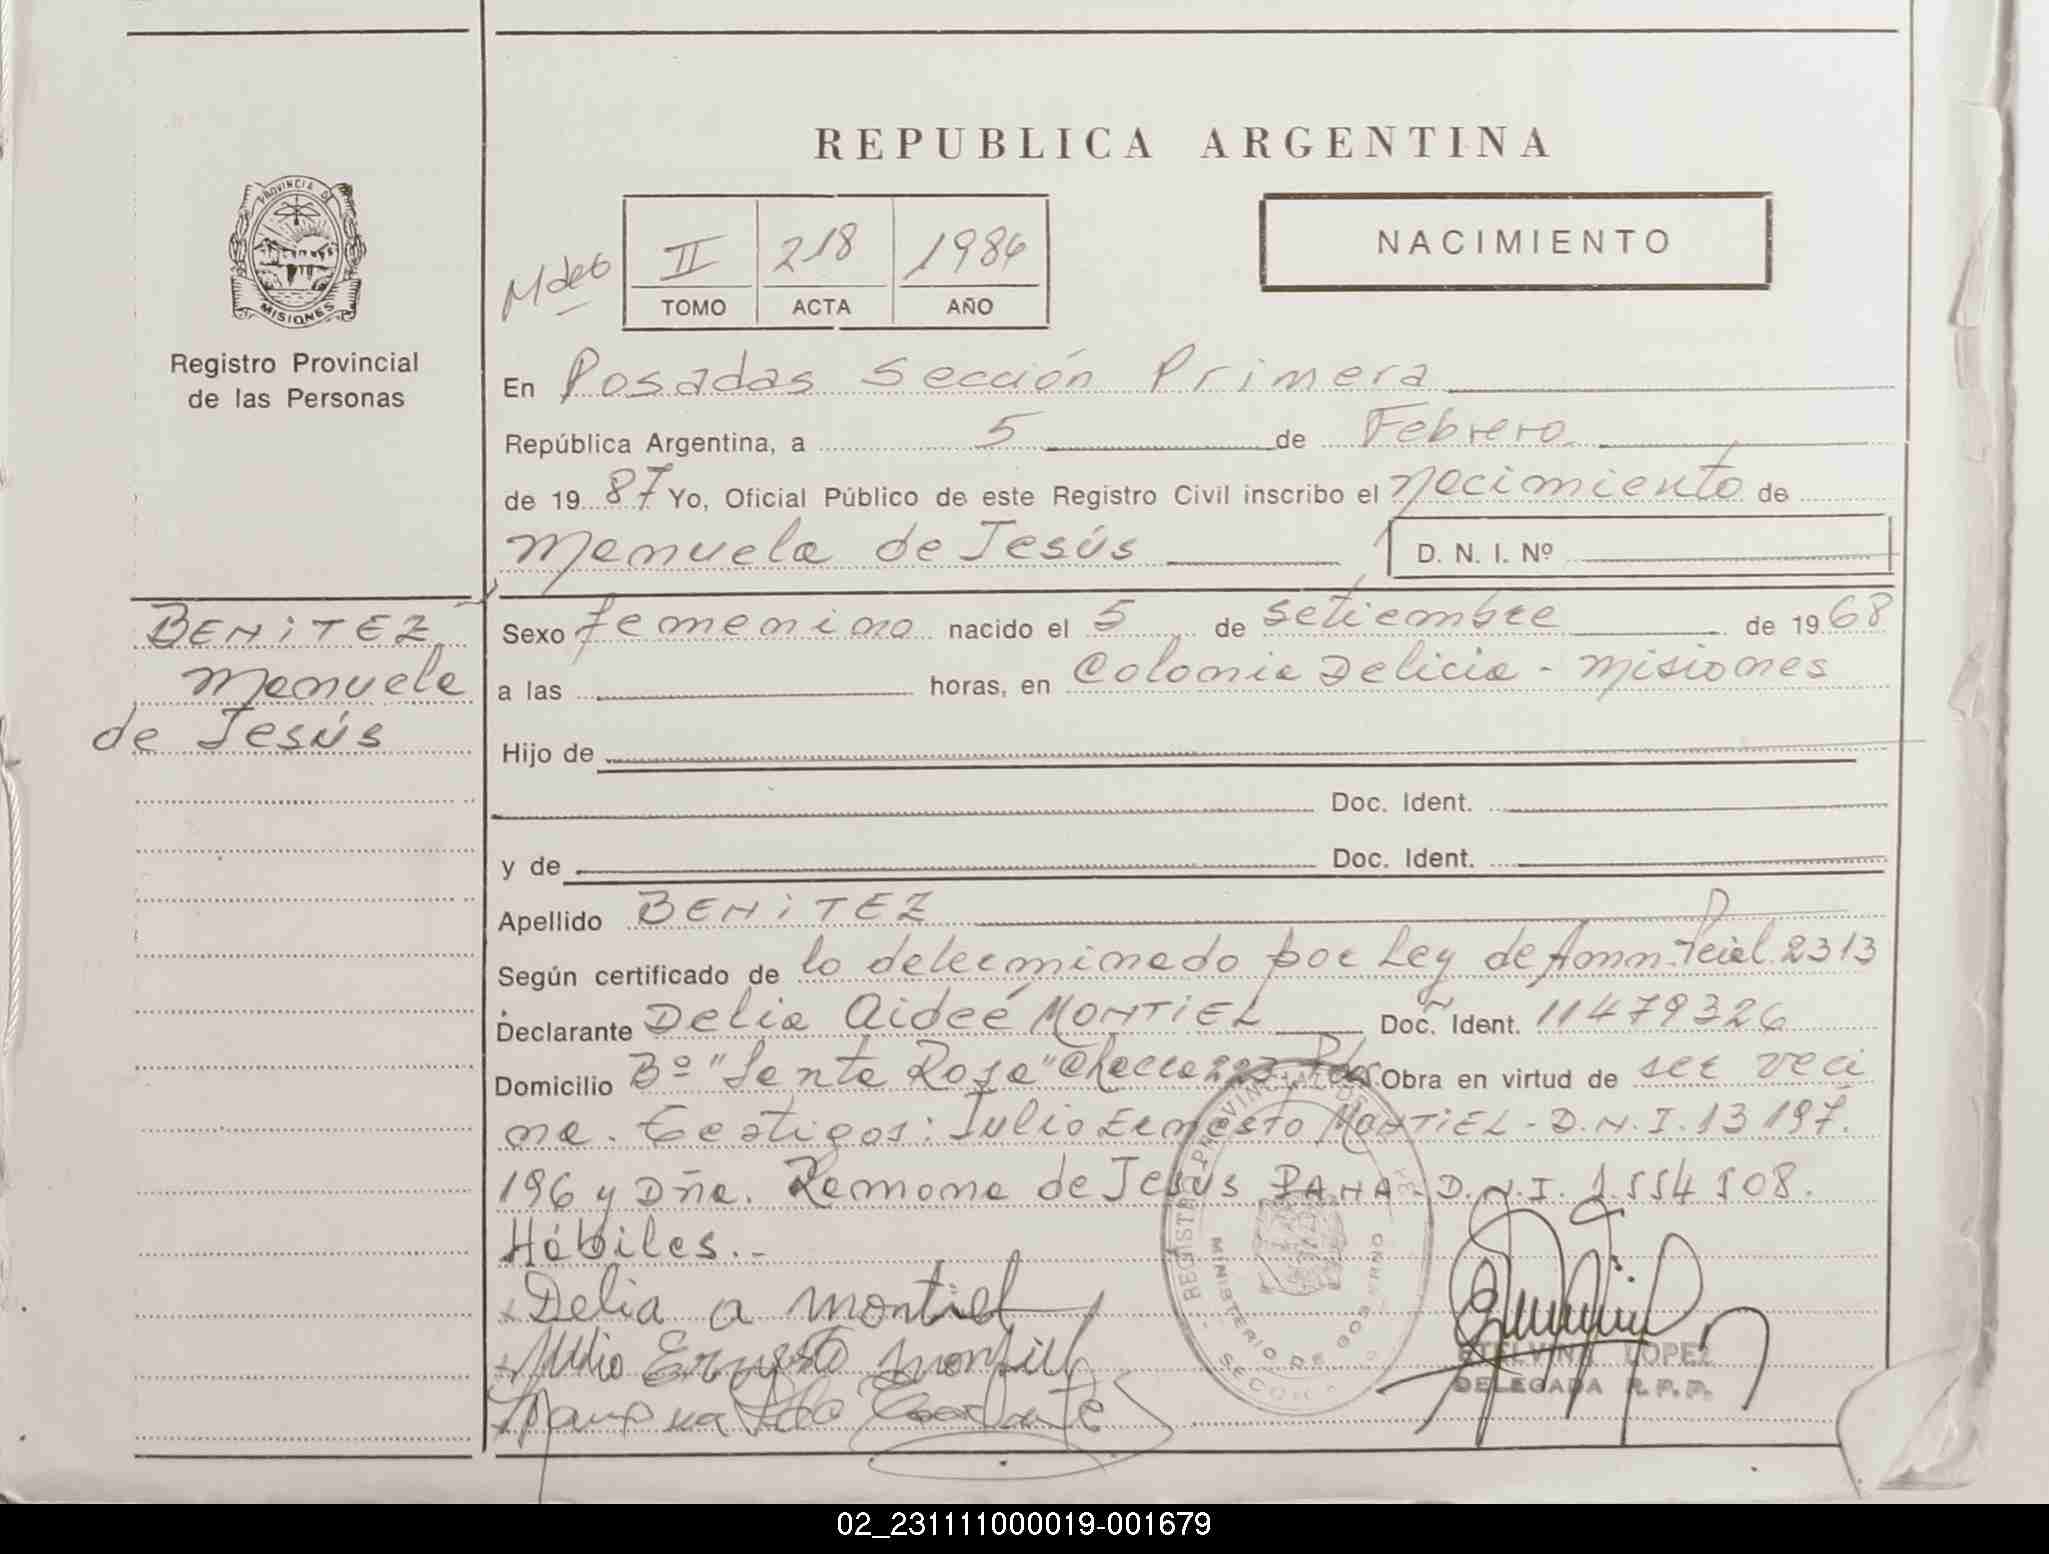 REPUBLICA ARGENTINA
PROVINCIA DE
MISIONES
Registro Provincial
de las Personas
II 218 1986
TOMO ACTA AÑO
NACIMIENTO
En Posadas Sección Primera
República Argentina, a 5 de Febrero
de 19 87 Yo, Oficial Público de este Registro Civil inscribo el nacimiento de
Manuela de Jesús D. N. I. Nº
BENiTEZ
Manuela
de Jesús
Sexo femenino nacido el 5 de setiembre de 19 68
a las horas, en Colonia Delicia - Misiones
Hijo de
Doc. Ident.
y de Doc. Ident.
Apellido BENiTEZ
Según certificado de lo determinado por Ley de Amn. Pcial. 2313
Declarante Delia Aideé MONTiEL Doc. Ident. 11479326
Domicilio Bº "Santa Rosa" Chacra 223 Pdas Obra en virtud de ser veci
na. Testigos: Julio Ernesto MONTiEL - D.N.I. 13 197.
196 y Dña. Ramona de Jesús D.N.I. 1.554 508.
Hábiles. -
Delia a montiel
Julio Ernesto montiel
REGISTRO PROVINCIAL DE
MINISTERIO DE GOBIERNO
ETELVINA LOPEZ
DELEGADA R.P.P.
02_231111000019-001679